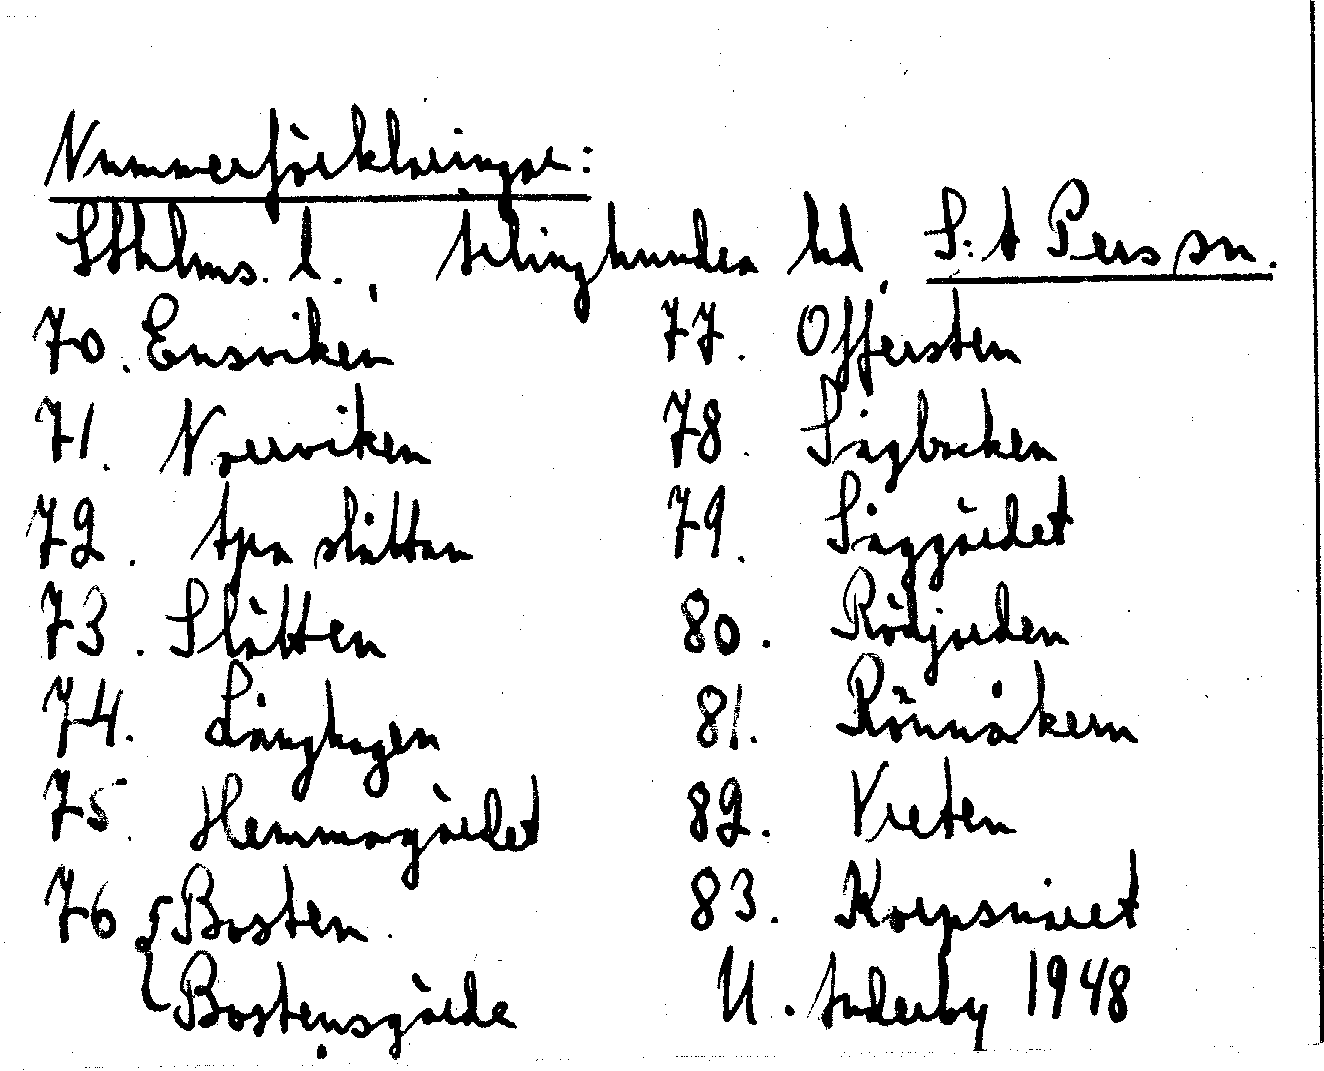 Nummerförklaringar:
Sthlms. l. Ärlinghundra hd. S:t Pers sn.
70. Ensviken
71. Norrviken
72. Apa slätten
73. Slätten
74. Långhagen
75. Hemmagärdet
76 Bosten
Bostensgärde
77. Offersten
78. Sågbacken
79. Såggärdet
80. Rödjorden
81. Rönnåkern
82. Vreten
83. Korpsnåret
U. Anderby 1948